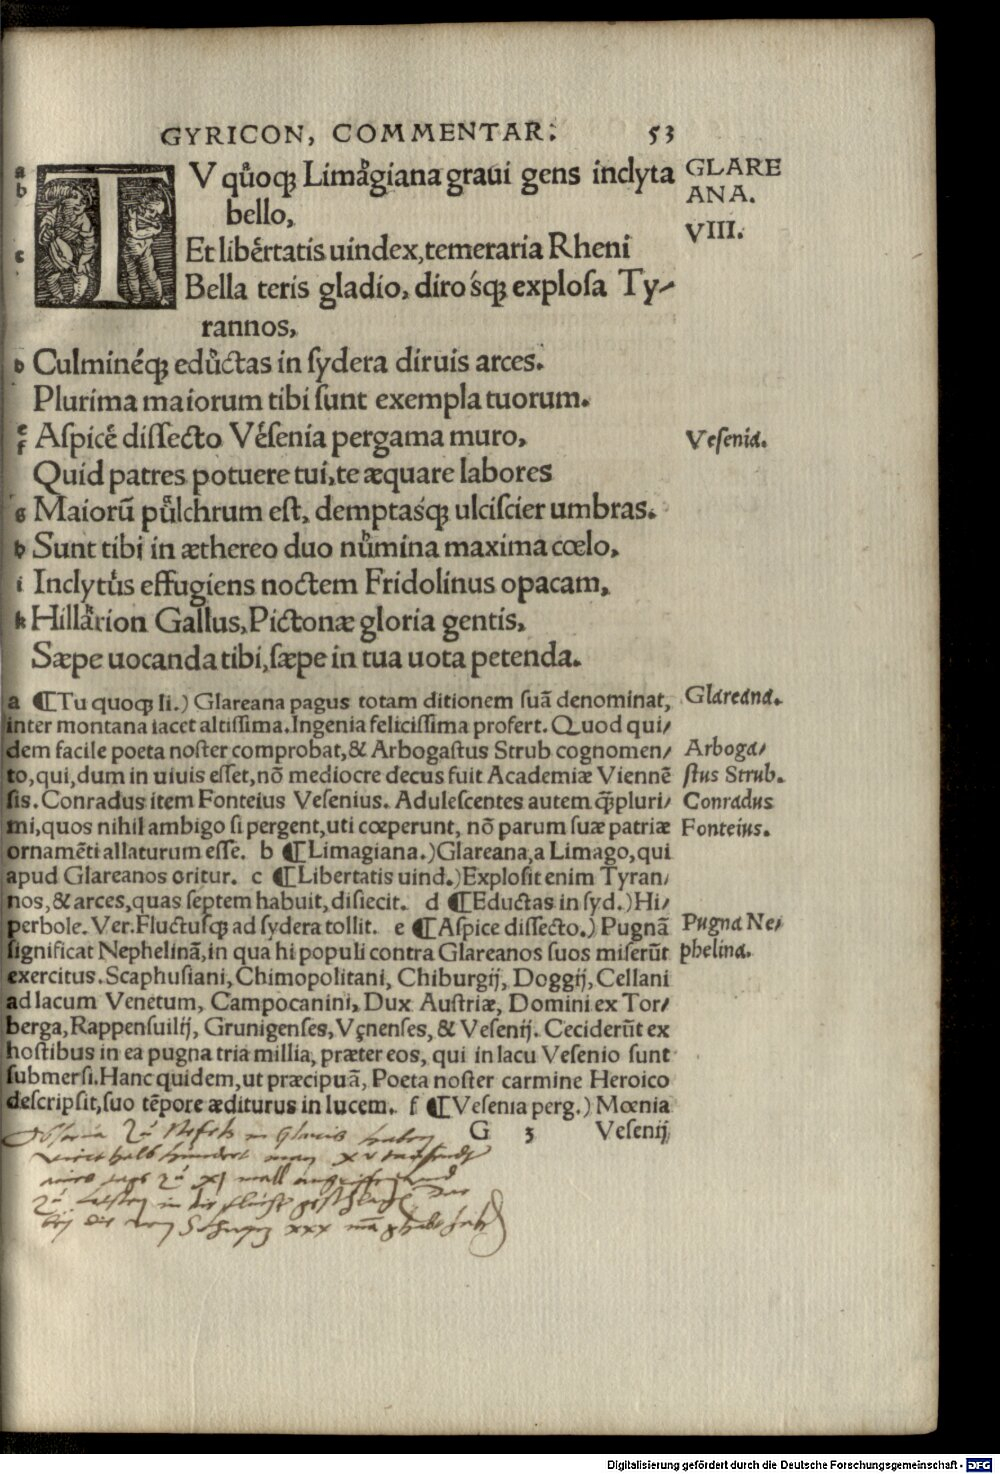 GYRICON, COMMENTAR. 53
GLAREANA.
VIII.
a
b
TV quoq; Limagiana graui gens inclyta
bello,
c
Et libertatis uindex, temeraria Rheni
Bella teris gladio, dirosq; explosa Ty-
rannos,
D Culmineq; eductas in sydera diruis arces.
Plurima maiorum tibi sunt exempla tuorum.
e
f
Aspice dissecto Vesenia pergama muro,
Vesenia.
Quid patres potuere tui, te æquare labores
G Maiorũ pulchrum est, demptasq; ulciscier umbras.
h Sunt tibi in æthereo duo numina maxima cœlo,
i Inclytus effugiens noctem Fridolinus opacam,
k Hillarion Gallus, Pictonæ gloria gentis,
Sæpe uocanda tibi, sæpe in tua uota petenda.
a ¶Tu quoq; li.) Glareana pagus totam ditionem suã denominat,
Glareana.
inter montana iacet altissima. Ingenia felicissima profert. Quod qui/
dem facile poeta noster comprobat, & Arbogastus Strub cognomen/
Arboga/
to, qui, dum in uiuis esset, nõ mediocre decus fuit Academiæ Viennẽ
stus Strub.
sis. Conradus item Fonteius Vesenius. Adulescentes autem q̃pluri/
Conradus
mi, quos nihil ambigo si pergent, uti cœperunt, nõ parum suæ patriæ
Fonteius.
ornamẽti allaturum esse. b ¶Limagiana.) Glareana, a Limago, qui
apud Glareanos oritur. c ¶Libertatis uind.) Explosit enim Tyran/
nos, & arces, quas septem habuit, disiecit. d ¶Eductas in syd.) Hi/
perbole. Ver. Fluctusq; ad sydera tollit. e ¶Aspice dissecto.) Pugnã
Pugna Ne/
significat Nephelinã, in qua hi populi contra Glareanos suos miserũt
phelina.
exercitus. Scaphusiani, Chimopolitani, Chiburgij, Doggij, Cellani
ad lacum Venetum, Campocanini, Dux Austriæ, Domini ex Tor/
berga, Rappensuilij, Grunigenses, Vęnenses, & Vesenij. Ceciderũt ex
hostibus in ea pugna tria millia, præter eos, qui in lacu Vesenio sunt
submersi. Hanc quidem, ut præcipuã, Poeta noster carmine Heroico
descripsit, suo tẽpore æditurus in lucem. f ¶Vesenia perg.) Mœnia
G 3 Vesenij
zů in Glaris haben
halb hundert man xv
zů xj mall
zů in die flucht
die xxx
Digitalisierung gefördert durch die Deutsche Forschungsgemeinschaft - DFG